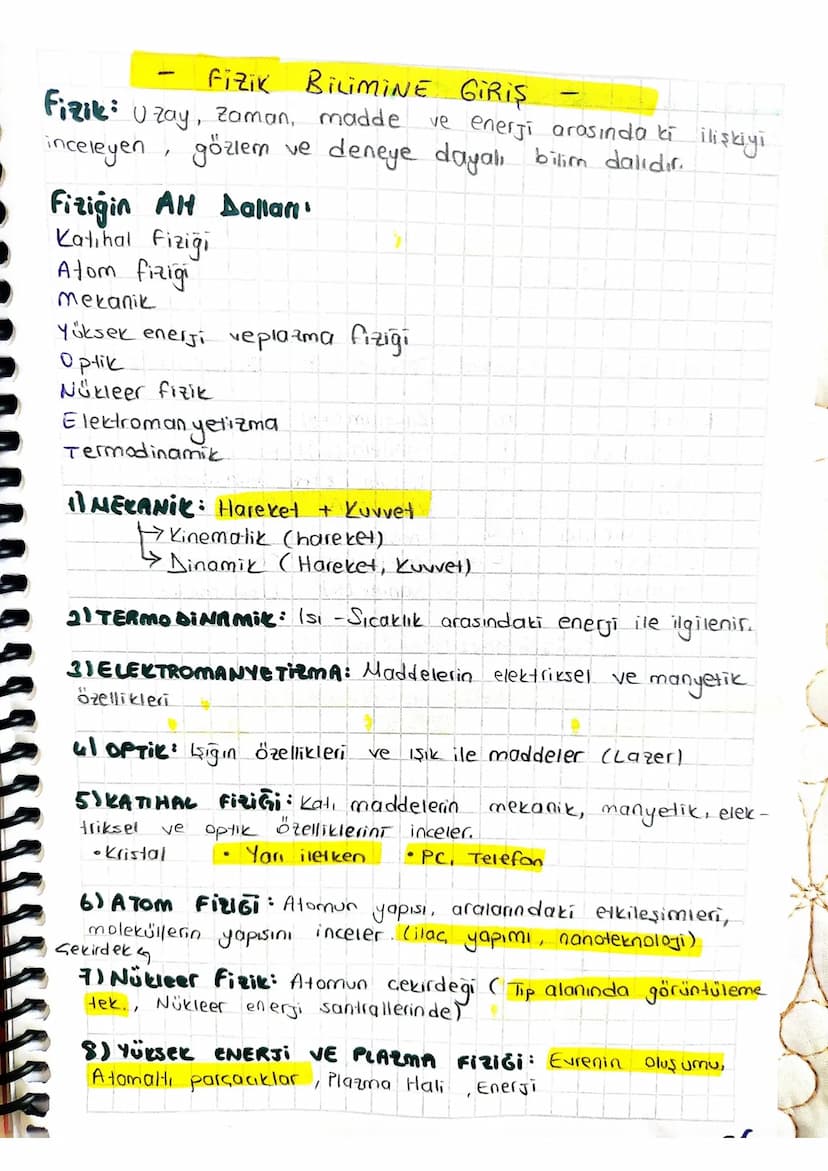 - FİZİK BİLİMİNE GİRİŞ -
Fizik: Uzay, zaman, madde ve enerji arasında ki ilişkiyi
inceleyen, gözlem ve deneye dayalı bilim dalıdır.
Fiziğin Alt Dalları:
Katıhal Fiziği
Atom fiziği
Mekanik
Yüksek enerji ve plazma fiziği
Optik
Nükleer fizik
Elektromanyetizma
Termodinamik
1) MEKANİK: Hareket + Kuvvet
→ Kinematik (hareket)
→ Dinamik (Hareket, Kuvvet)
2) TERMODİNAMİK: Isı - Sıcaklık arasındaki enerji ile ilgilenir.
3) ELEKTROMANYETİZMA: Maddelerin elektriksel ve manyetik
özellikleri
4) OPTİK: Işığın özellikleri ve ışık ile maddeler (Lazer)
5) KATIHAL FİZİĞİ: Katı maddelerin mekanik, manyetik, elek-
triksel ve optik özelliklerini inceler.
• Kristal • Yarı iletken • PC, Telefon
6) ATOM FİZİĞİ: Atomun yapısı, aralarındaki etkileşimleri,
moleküllerin yapısını inceler. (ilaç yapımı, nanoteknoloji)
Çekirdek
7) Nükleer Fizik: Atomun çekirdeği (Tıp alanında görüntüleme
tek., Nükleer enerji santrallerinde)
8) YÜKSEK ENERJİ VE PLAZMA FİZİĞİ: Evrenin oluşumu,
Atomaltı parçacıklar, Plazma Hali, Enerji